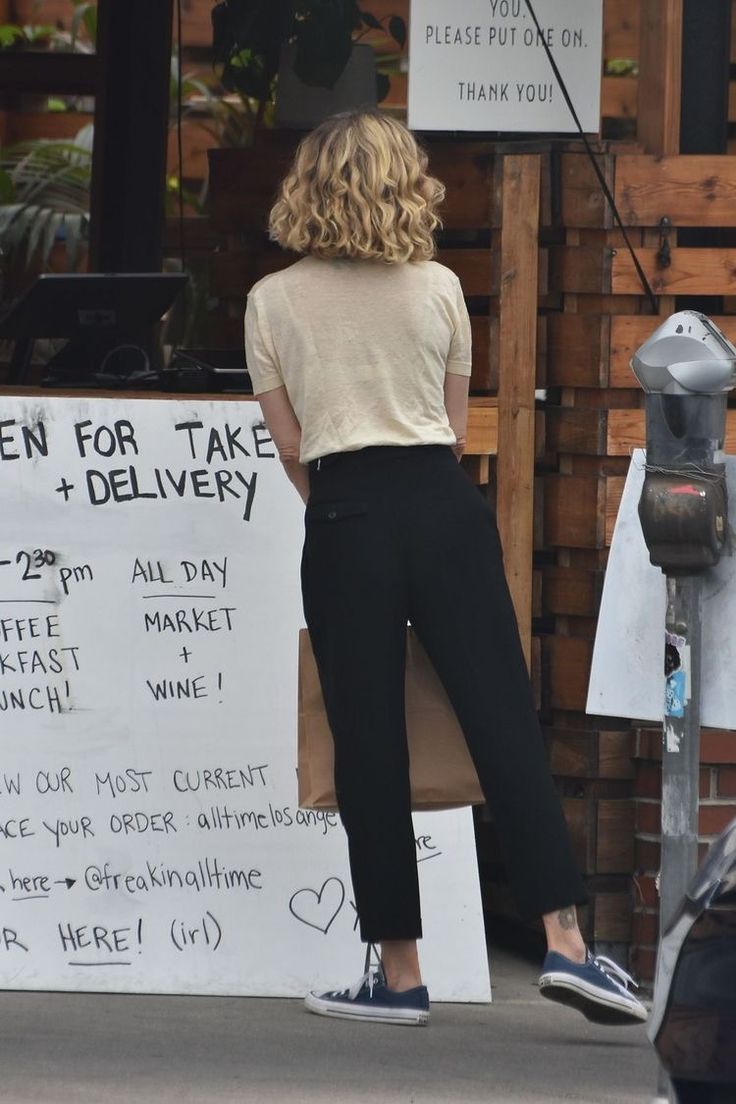 YOU.
PLEASE PUT ONE ON.
THANK YOU!
EN FOR TAKE
+ DELIVERY
-2³⁰ pm
FFEE
KFAST
UNCH!
ALL DAY
MARKET
+
WINE!
W OUR MOST CURRENT
ACE YOUR ORDER: alltimelosange
here → @freakinalltime
R HERE! (irl)